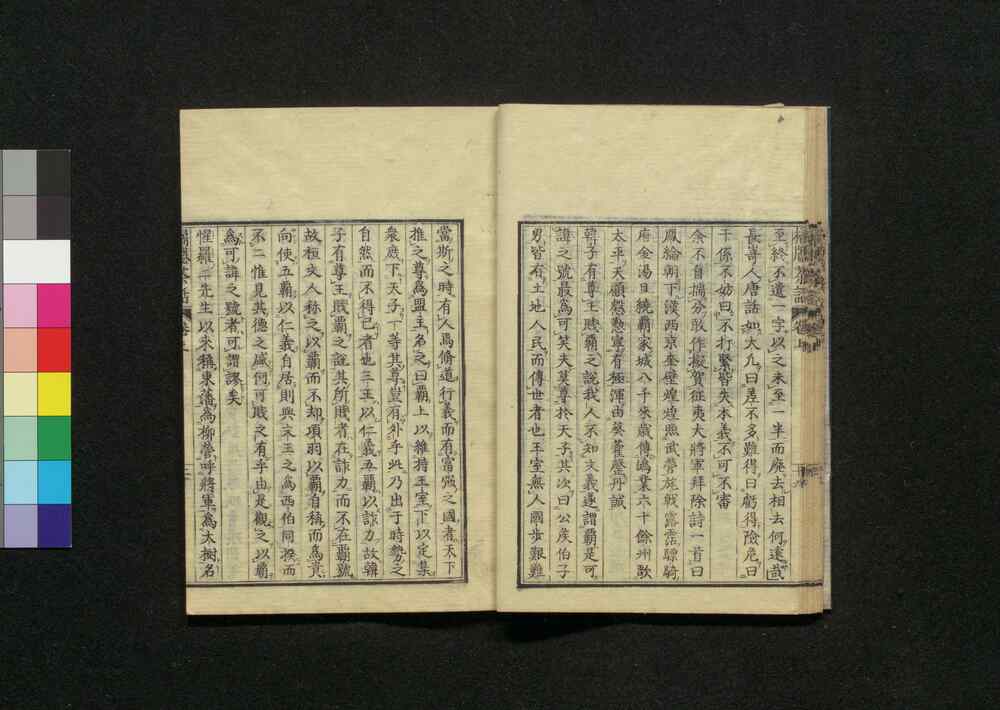 至終不遺一字以之未至一半而廃去相去何遠哉
長尋人唐話如大凢曰差不多難得曰虧得險危曰
干係不妨曰不打緊皆失本義不可不審
余不自揣分敢作擬賀征夷大將軍拜除詩一首曰
鳳綸朝下漠西京奎壁煌煌照武營旄戟露霑驃騎
府金湯日繞覇家城八千來歳傳鴻業六十餘州歌
太平天顧慇懃寧有極渾由葵藿罄丹誠
韓子有尊王賤覇之說我人不知文義遂謂覇是可
諱之號最為可笑夫莫尊於天子其次曰公矦伯子
男皆有土地人民而傳世者也王室無人國歩艱難
當斯之時有人焉脩道行義而有富強之國者天下
推之尊為盟主名之曰覇上以維持王室下以定集
衆庶下天子一等其尊豈有外乎此乃出于時勢之
自然而不得已者也三王以仁義五覇以詐力故韓
子有尊王賤覇之說其所賤者在詐力而不在覇號
故桓文人称之以覇而不却項羽以覇自稱而為貴
向使五覇以仁義自居則與文王之為西伯同揆而
不二惟見其德之盛何可賤之有乎由是觀之以覇
為可諱之號者可謂謬矣
惺羅二先生以來稱東藩為柳營呼將軍為大樹名